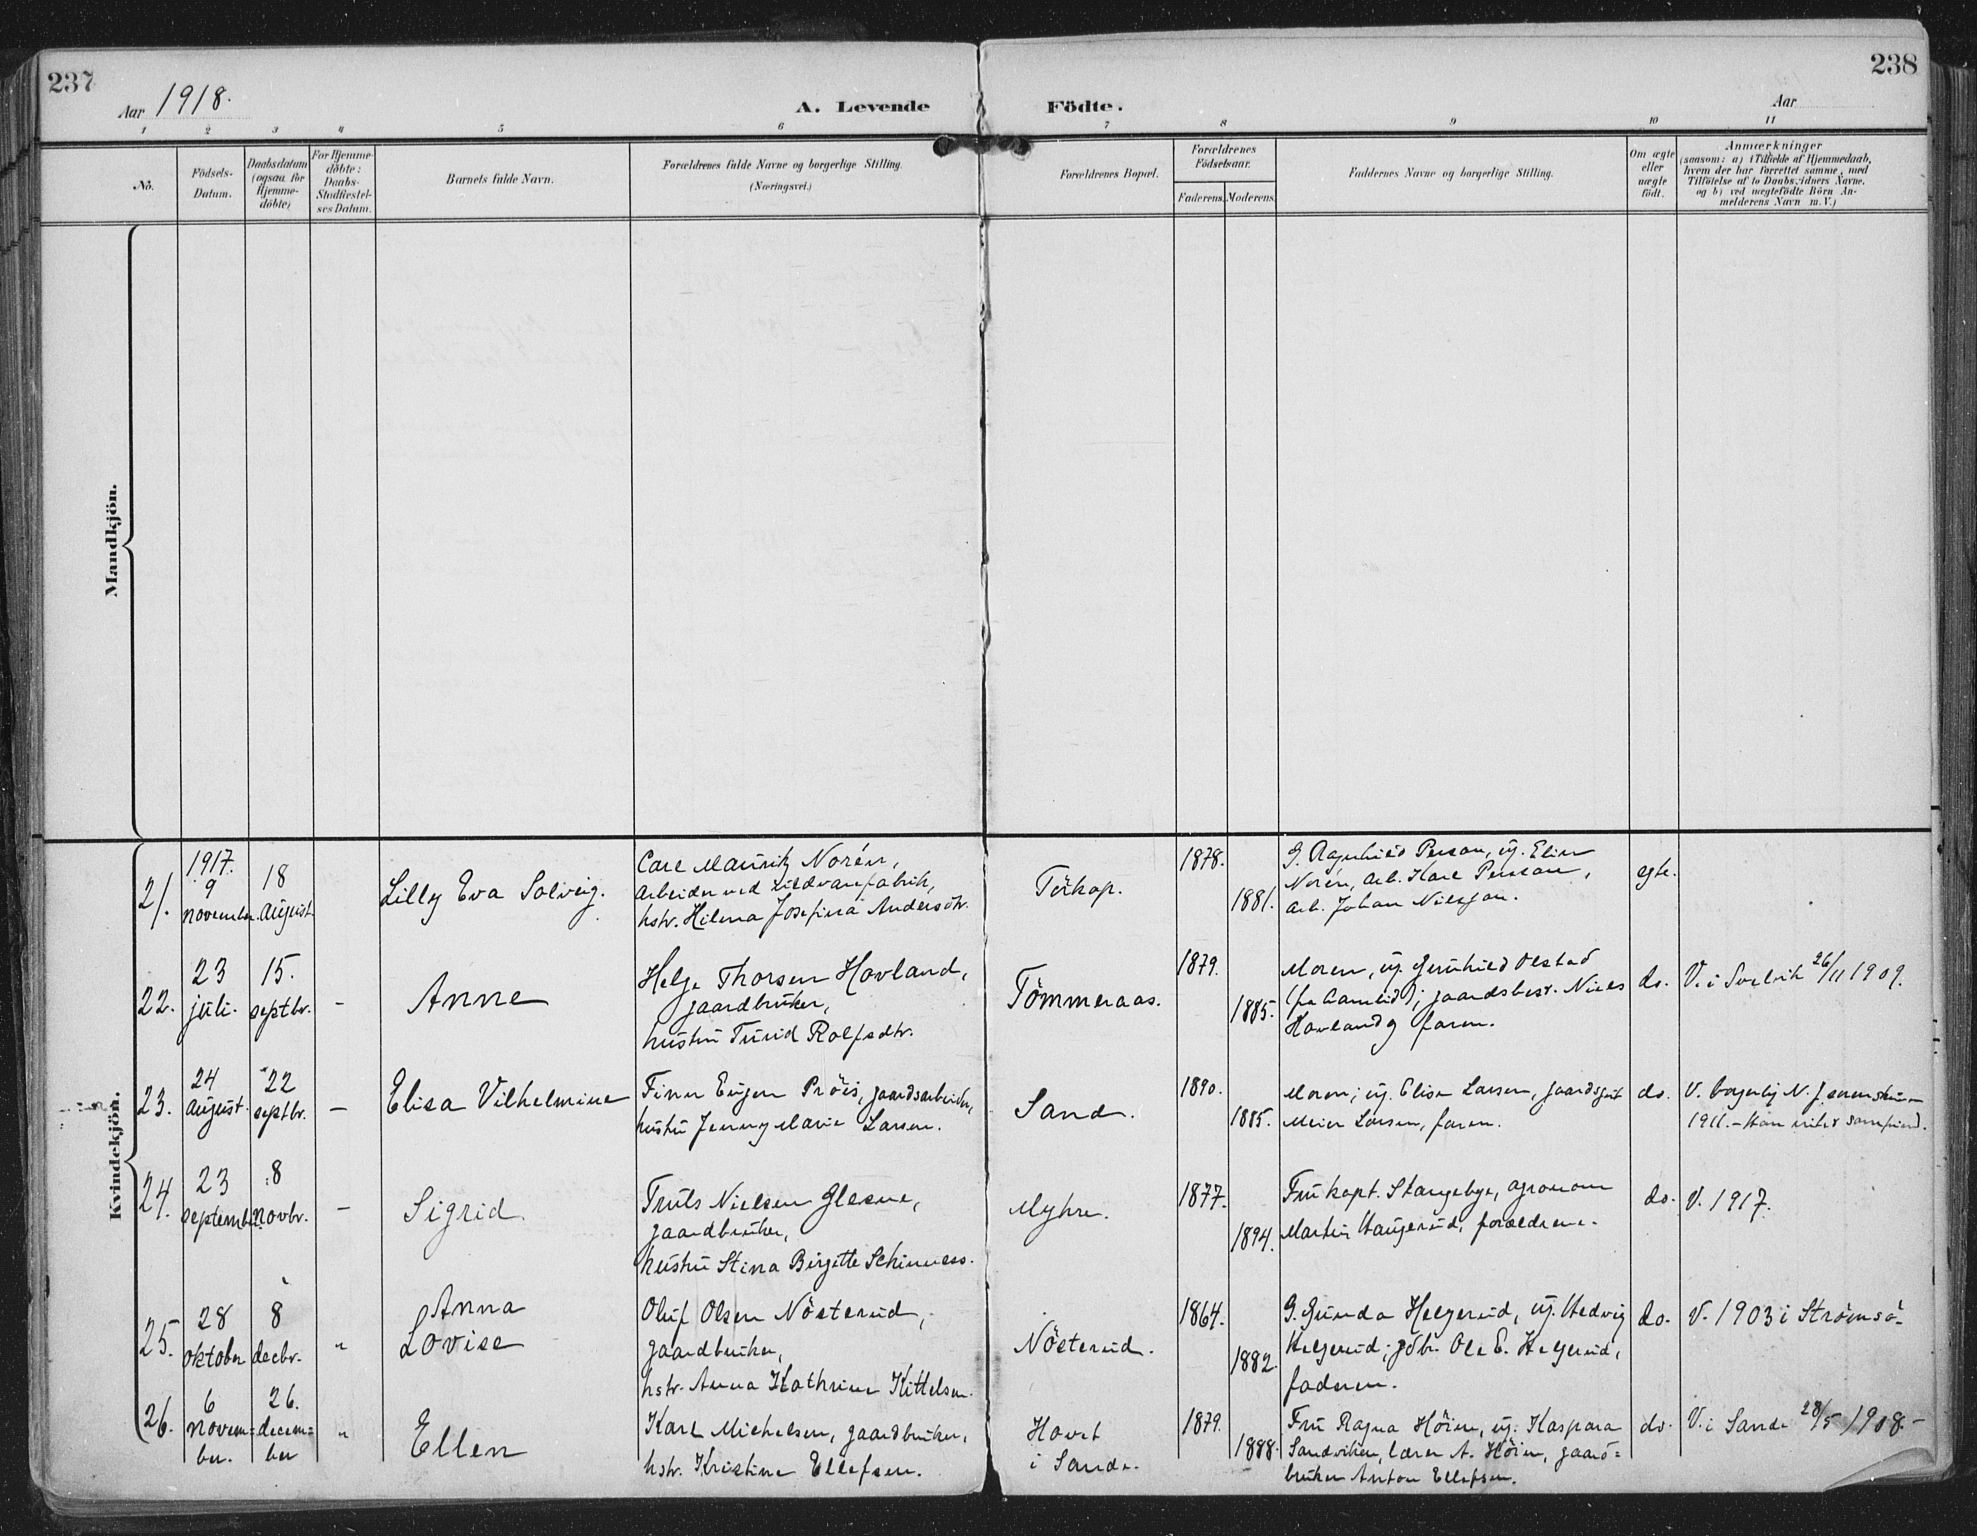 237
238
Aar 1918.
A. Levende Födte.
Aar
1 2 3 4 5 6 7 8 9 10 11
No.
Födsels-Datum.
Daabsdatum (ogsaa for Hjemme-döbte)
For Hjemme-döbte: Daabs-Stadfæstel-ses Datum.
Barnets fulde Navn.
Forældrenes fulde Navne og borgerlige Stilling.
(Næringsvei.)
Forældrenes Bopæl.
Forældrenes Födselsaar.
Faderens. Moderens.
Faddernes Navne og borgerlige Stilling.
Om ægte eller uægte födt.
Anmærkninger
(saasom: a) i Tilfælde af Hjemmedaab,
hvem der har forrettet samme, med
Tilföielse af to Daabsvidners Navne.
og b) ved uægtefödte Börn An-
melderens Navn m. V.)
Mandkjön.
Kvindekjön.
21. 1917. 9 november. 18 august
Lilly Eva Solveig.
Carl Mauritz Norén,
arbeider ved
hstr. Hilma Josefina Andersdtr.
Törkop.
1878.
1881.
G. Ragnhild Persson, ug. Elin
Norén, arb. Karl Persson,
arb. Johan Nielsson.
egte.
22. 23 juli. 15. septbr. –
Anne
Helge Thorsen Hovland,
gaardbruker,
hustru Turid Rolfsdtr.
Tömmeraas.
1879.
1885.
Moren, ug. Gunhild Olstad
gaardsbest. Niels
Hovland og faren.
do.
V. i Svelvik 26/11 1909.
23. 24 august. 22 septbr. –
Elisa Vilhelmine
Finn Eugen Pröis, gaardsarbeider,
hustru Jenny Marie Larsen.
Sand.
1890.
1885.
Moren, ug. Elise Larsen, gaardsgut
Meier Larsen, faren.
do.
V. borgerlig N.
1911. –
24. 23 septembr. 8 novbr. –
Sigrid.
Truls Nielsen Glesne,
gaardbruker,
hustru Stina Birgitte
Myhre.
1877.
1894.
Fru kapt. Stangebye, agronom
Martin Haugerud, forældrene.
do.
V. 1917.
25. 28 oktober 8 decbr. "
Anna
Lovise
Oluf Olsen Nösterud,
gaardbruker,
hstr. Anna Kathrine Kittelsen.
Nösterud.
1864.
1882.
G. Gunda Helgerud, ug. Hedvig
Helgerud, gdbr. Ole E. Helgerud,
faderen.
do.
V. 1903 i Strömsö.
26. 6 novem=ber. 26. decem=ber "
Ellen
Karl Michelsen, gaardbruker,
hstr. Kristine Ellefsen.
Hovet
i Sande.
1879.
1888.
Fru Ragna Höien, ug. Kaspara
Sandviken, lærer A. Höien, gaard=
bruker Anton Ellefsen.
do.
V. i Sande 28/5 1908.